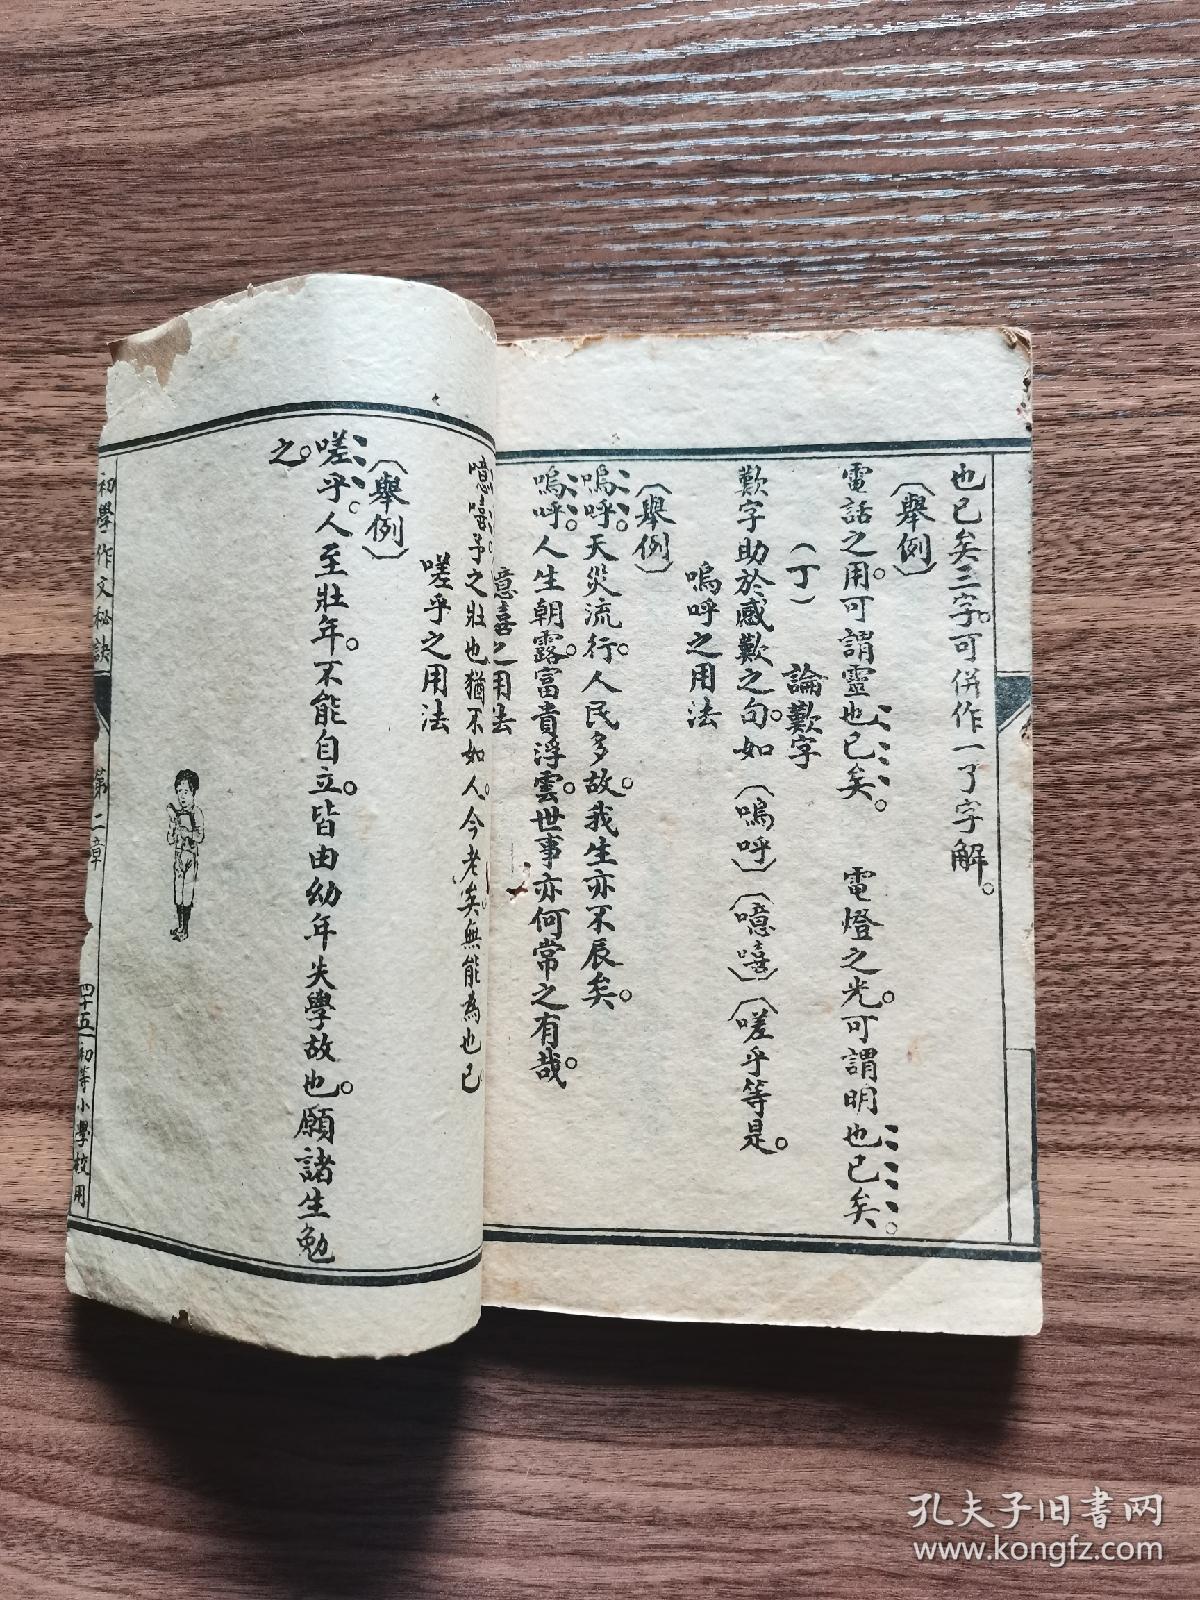 也已矣三字。可併作一了字解。
（舉例）
電話之用。可謂靈也已矣。 電燈之光。可謂明也已矣。
（丁） 論歎字
歎字助於感歎之句。如（嗚呼）（噫嘻）（嗟乎等是。
嗚呼之用法
（舉例）
嗚呼。天災流行。人民多故。我生亦不辰矣。
嗚呼。人生朝露。富貴浮雲。世事亦何常之有哉。
噫嘻之用法
噫嘻予之壯也猶不如人。今老矣。無能為也已
嗟乎之用法
（舉例）
嗟乎。人至壯年。不能自立。皆由幼年失學故也。願諸生勉
之。
初學作文秘訣 第二章 四十五 初等小學校用
孔夫子旧书网
www.kongfz.com